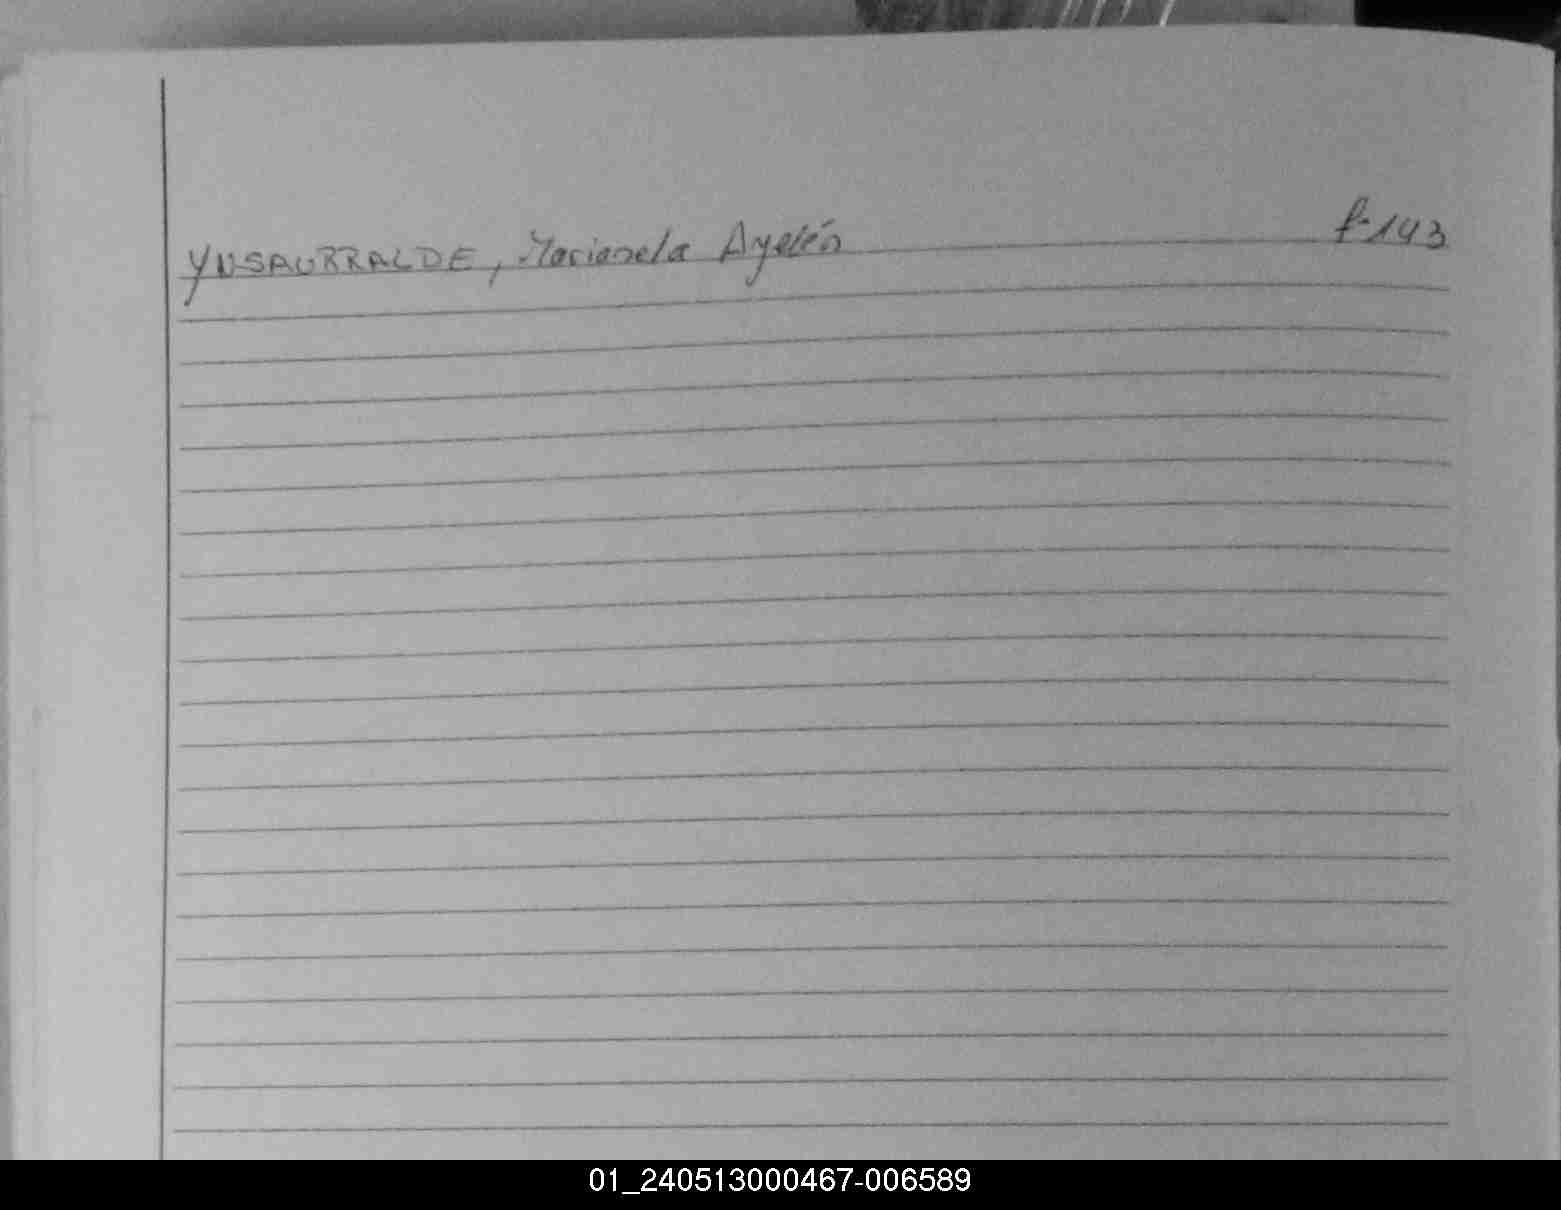 YNSAURRALDE, Marianela Ayelén f-143
01_240513000467-006589